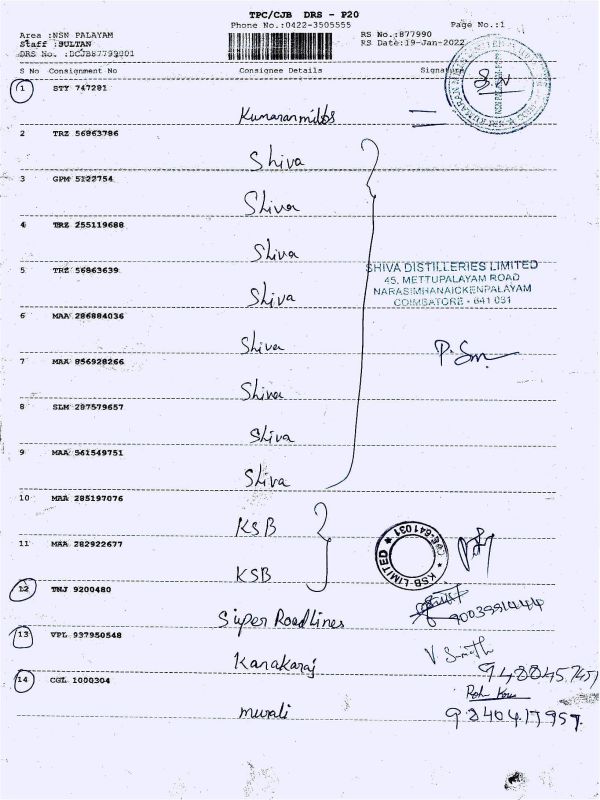 TPC/CJB DRS - P20
Phone No.:0422-3505555 Page No.:1
Area :NSN PALAYAM RS No.:877990
Staff :SULTAN RS Date:19-Jan-2022
DRS No. :DCJB87799001
S No Consignment No Consignee Details Signature
1 STY 747281
Kumaran mills
2 TRZ 56863786
Shiva
3 GPM 5122754
Shiva
4 TRZ 255119688
Shiva
5 TRZ 56863639
Shiva
SHIVA DISTILLERIES LIMITED
45, METTUPALAYAM ROAD
NARASIMHANAICKENPALAYAM
COIMBATORE - 641 031
6 MAA 286884036
Shiva
7 MAA 856928266
Shiva
8 SLM 287579657
Shiva
9 MAA 561549751
Shiva
10 MAA 285197076
KSB
11 MAA 282922677
KSB
KSB-LIMITED CBE-641031
12 TNJ 9200480
Super Road Lines
13 VPL 937950548
Kanakaraj
14 CGL 1000304
murali